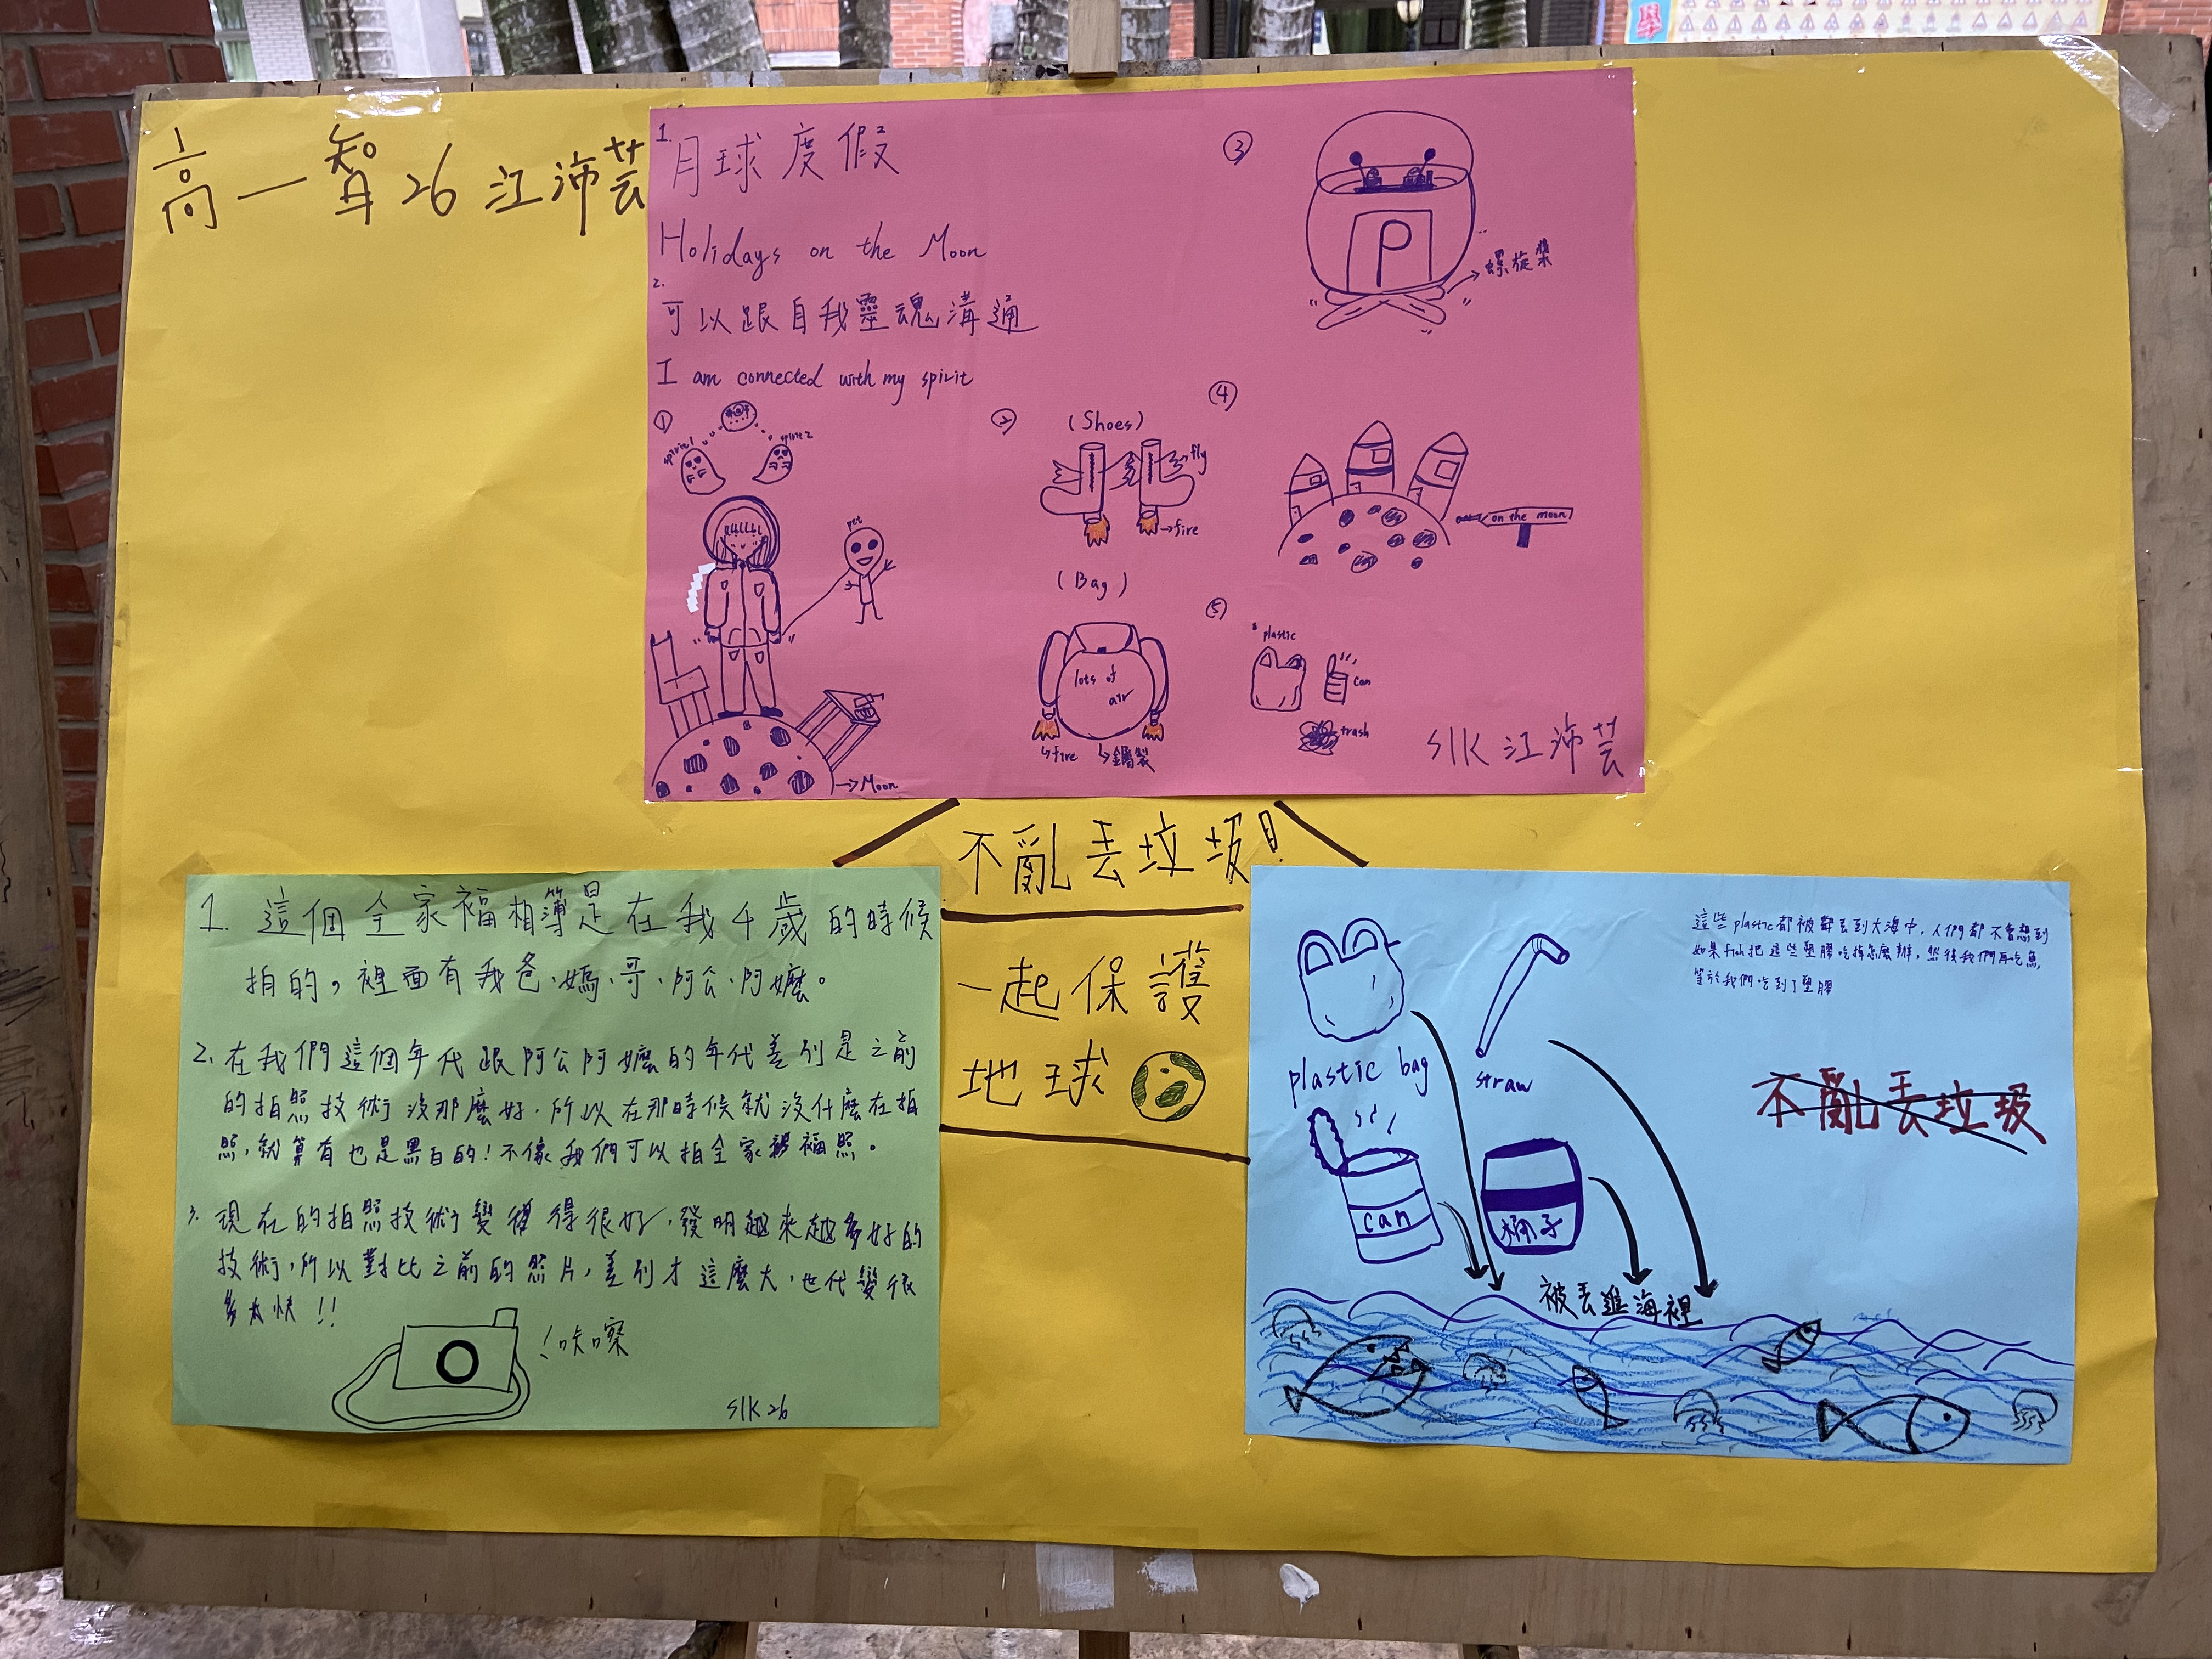 高一智26江沛芸
1. 月球度假
Holidays on the Moon
2. 可以跟自我靈魂溝通
I am connected with my spirit
①
spirit1
spirit2
pet
→Moon
②
(Shoes)
→fly
→fire
(Bag)
lots of
air
↳fire
↳金屬製
③
P
→螺旋槳
④
on the moon
⑤
plastic
can
trash
S1K 江沛芸
不亂丟垃圾!
一起保護
地球
1. 這個全家福相簿是在我4歲的時候
拍的，裡面有我爸、媽、哥、阿公、阿嬤。
2. 在我們這個年代跟阿公阿嬤的年代差別是之前
的拍照技術沒那麼好，所以在那時候就沒什麼在拍
照，就算有也是黑白的!不像我們可以拍全家福照。
3. 現在的拍照技術變得很好，發明越來越多好的
技術，所以對比之前的照片，差別才這麼大，世代變很
多太快!!
!咔嚓
S1K 26
這些plastic都被丟到大海中，人們都不會想到
如果fish把這些塑膠吃掉怎麼辦，然後我們再吃魚，
等於我們吃到了塑膠
plastic bag
straw
不亂丟垃圾
can
桶子
被丟進海裡